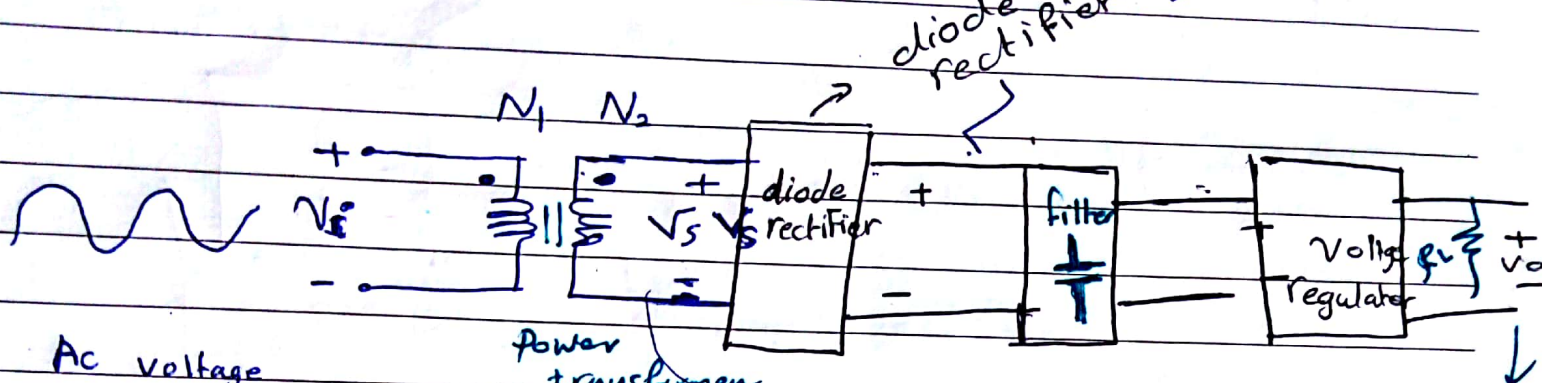 diode
rectifier
N1 N2
+
Vi
-
+
Vs Vs
-
diode
rectifier
+
-
filter
Voltge
regulater
RL
+
Vo
-
Ac voltage
Power
transformer